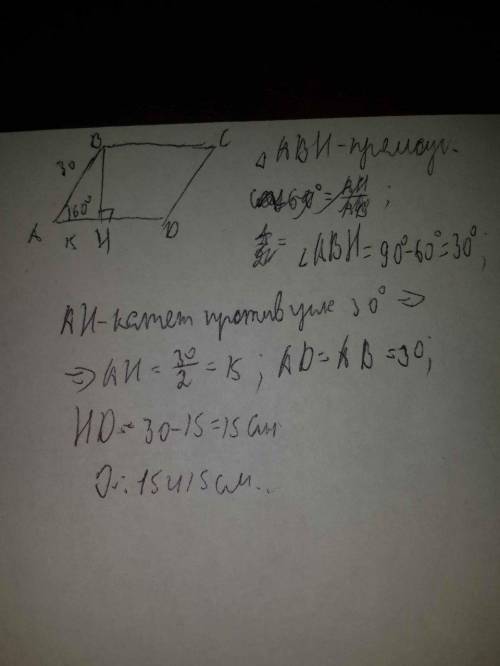 B C
30
A 60° 15 H D
△ABH - прямоуг.
cos 60° = AH/AB ;
∠ABH = 90° - 60° = 30° ;
AH - катет против угла 30° ⇒
⇒ AH = 30/2 = 15 ; AD = AB = 30 ;
HD = 30 - 15 = 15 см
О: 15 и 15 см.